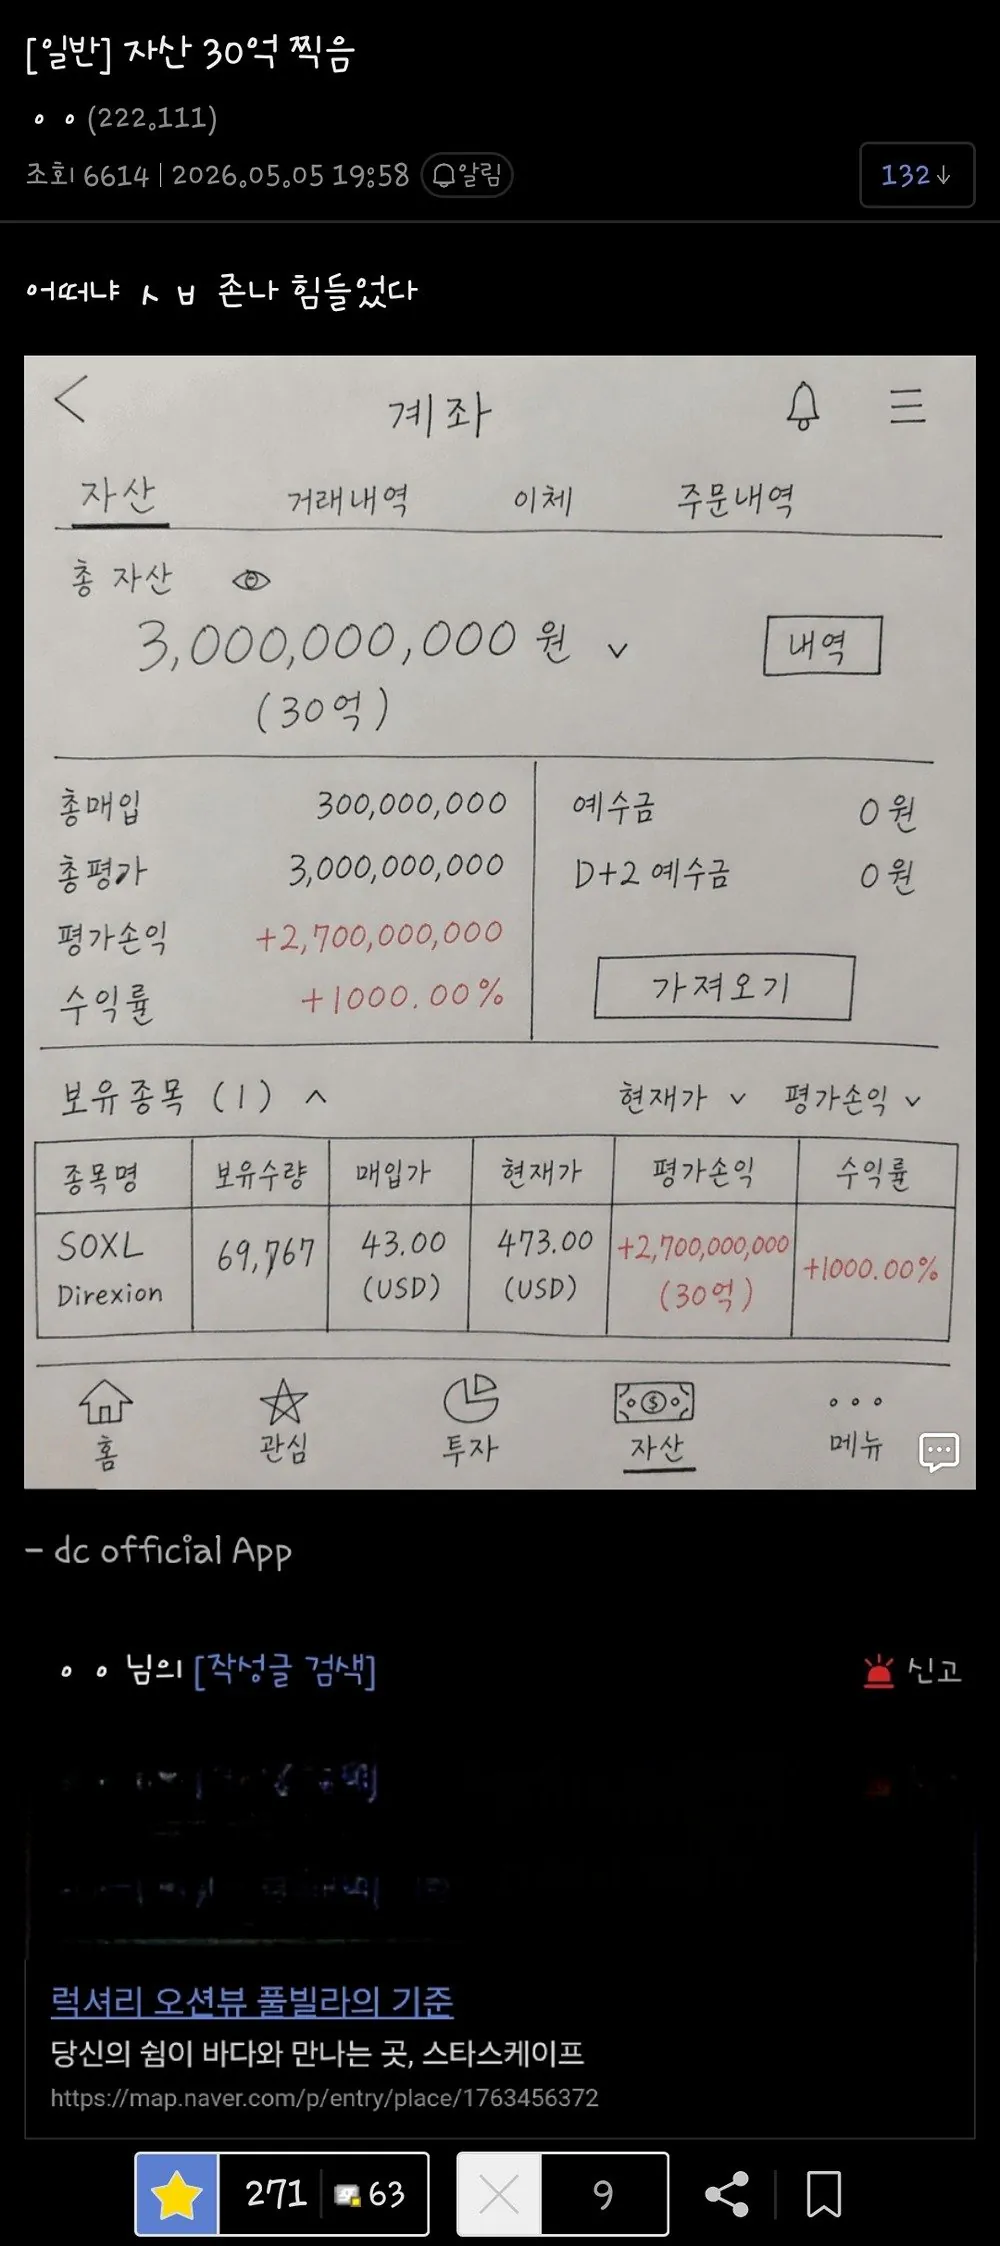 [일반] 자산 30억 찍음
ㅇㅇ(222.111)
조회 6614 | 2026.05.05 19:58 알림
132↓
어떠냐 ㅅㅂ 존나 힘들었다
계좌
자산 거래내역 이체 주문내역
총 자산
3,000,000,000 원 내역
(30억)
총매입 300,000,000 예수금 0원
총평가 3,000,000,000 D+2 예수금 0원
평가손익 +2,700,000,000
수익률 +1000.00% 가져오기
보유종목 (1) 현재가 평가손익
종목명 보유수량 매입가 현재가 평가손익 수익률
SOXL 69,767 43.00 473.00 +2,700,000,000 +1000.00%
Direxion (USD) (USD) (30억)
홈 관심 투자 자산 메뉴
- dc official App
ㅇㅇ 님의 [작성글 검색] 신고
럭셔리 오션뷰 풀빌라의 기준
당신의 쉼이 바다와 만나는 곳, 스타스케이프
https://map.naver.com/p/entry/place/1763456372
271 63 9